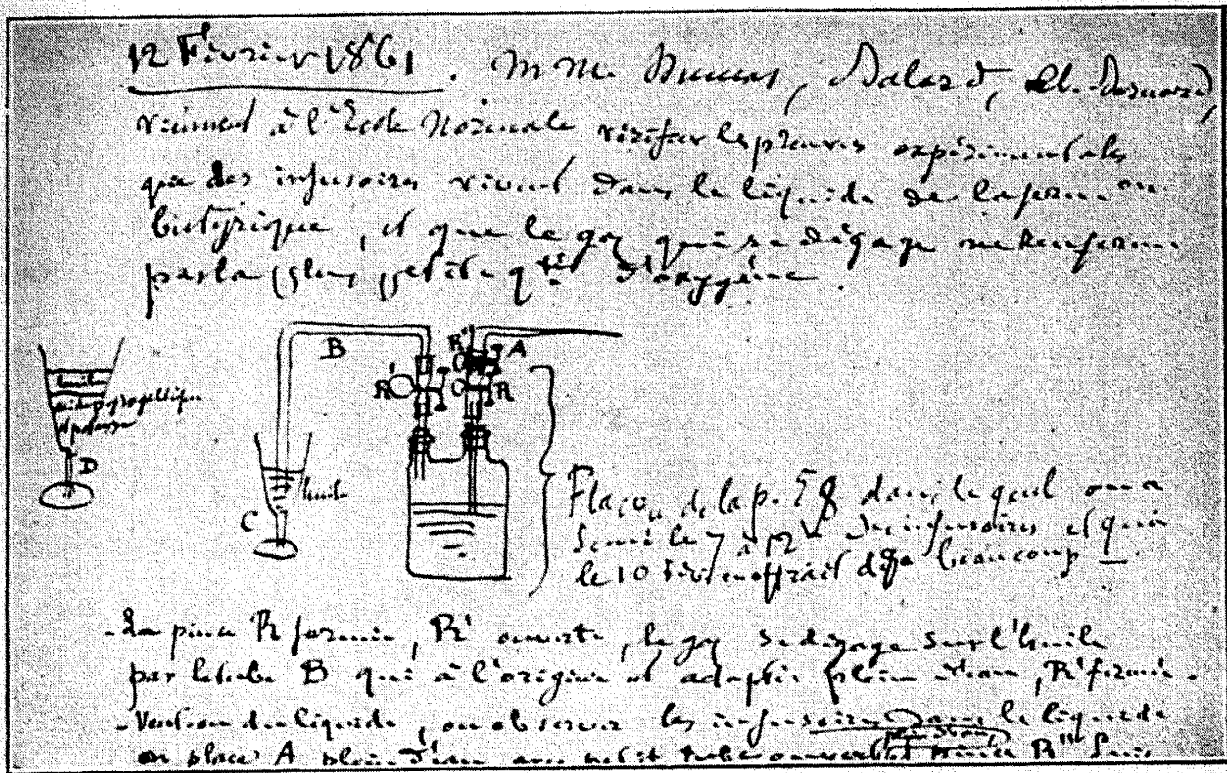 12 Février 1861. MM. Dumas, Balard, Cl. Bernard,
viennent à l'Ecole Normale vérifier les preuves expérimentales
que des infusoires vivent dans le liquide de la ferm.on
butyrique, et que le gaz qui se dégage ne renferme
pas la plus petite q.té d'oxygène.
B R" A
R' R
huile
acide pyrogallique
et potasse
D
huile
C
Flacon de la p. 58 dans lequel on a
semé le 7 à 12h des infusoires et qui
le 10 en offrait déjà beaucoup —
- La pince R fermée, R' ouverte, le gaz se dégage sur l'huile
par le tube B qui à l'origine est adapté plein d'eau, R' fermée.
- Veut-on du liquide, on observe les infusoires dans le liquide
plein d'eau
on place A plein d'eau avec petit tube ouvert et pince R" puis